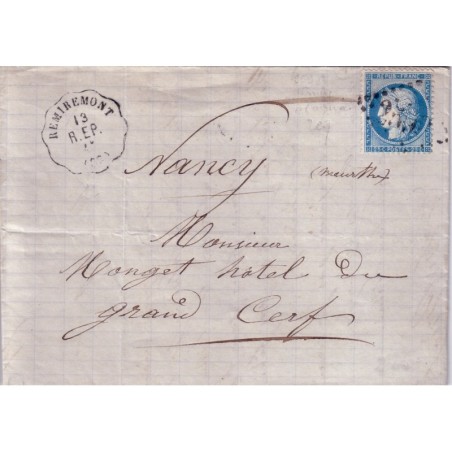 REMIREMONT
13
R.EP.
REPUB. FRANC.
Nancy (meurthe)
Monsieur
Monget hotel Du
grand Cerf